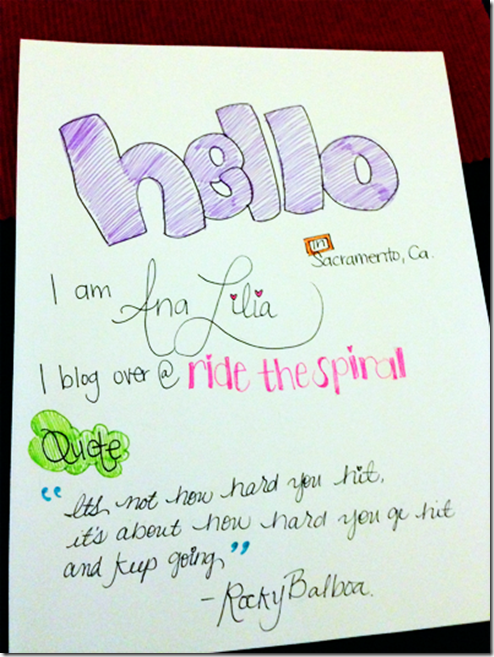 hello
in
Sacramento, Ca.
I am Ana Lilia
I blog over @ ride the spiral
Quote
"Its not how hard you hit,
it's about how hard you ge hit
and keep going"
- Rocky Balboa.